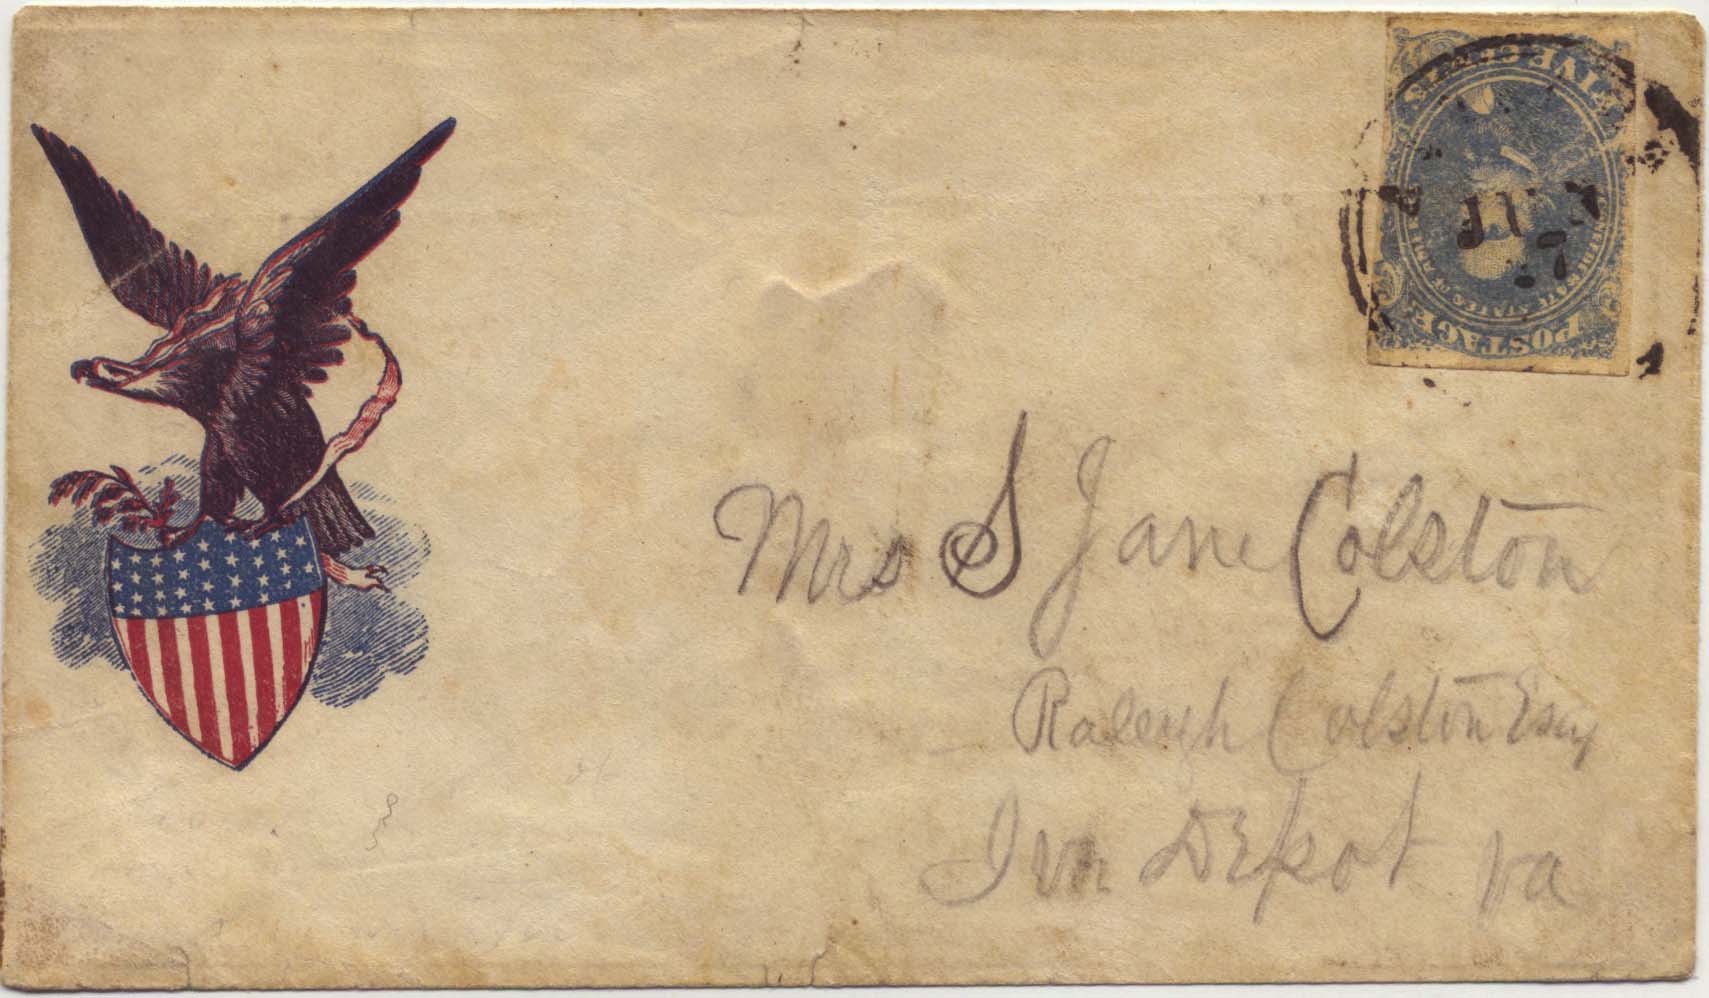 FIVE CENTS
CONFEDERATE STATES OF AMERICA
POSTAGE
Mrs S Jane Colston
Raleigh Colston Esq
Depot Va